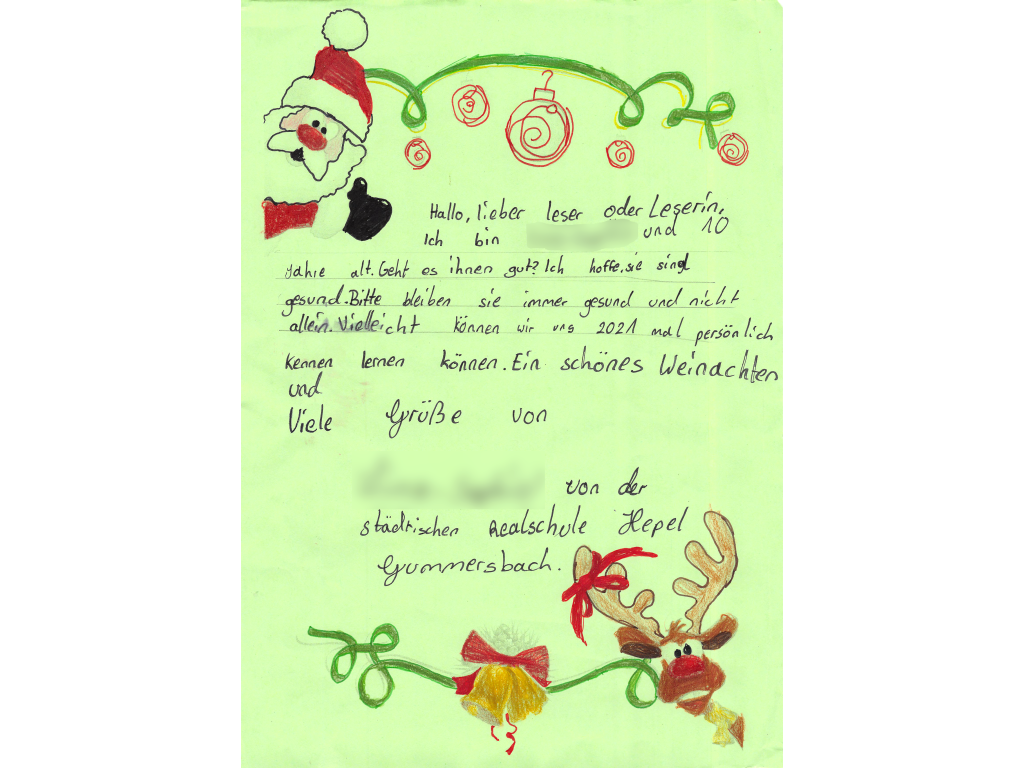 Hallo, lieber leser oder Leserin,
Ich bin und 10
Jahre alt. Geht es ihnen gut? Ich hoffe, sie sind
gesund. Bitte bleiben sie immer gesund und nicht
allein. Vielleicht können wir uns 2021 mal persönlich
kennen lernen können. Ein schönes Weinachten
und
Viele Grüße von
von der
städtischen Realschule Hepel
Gummersbach.